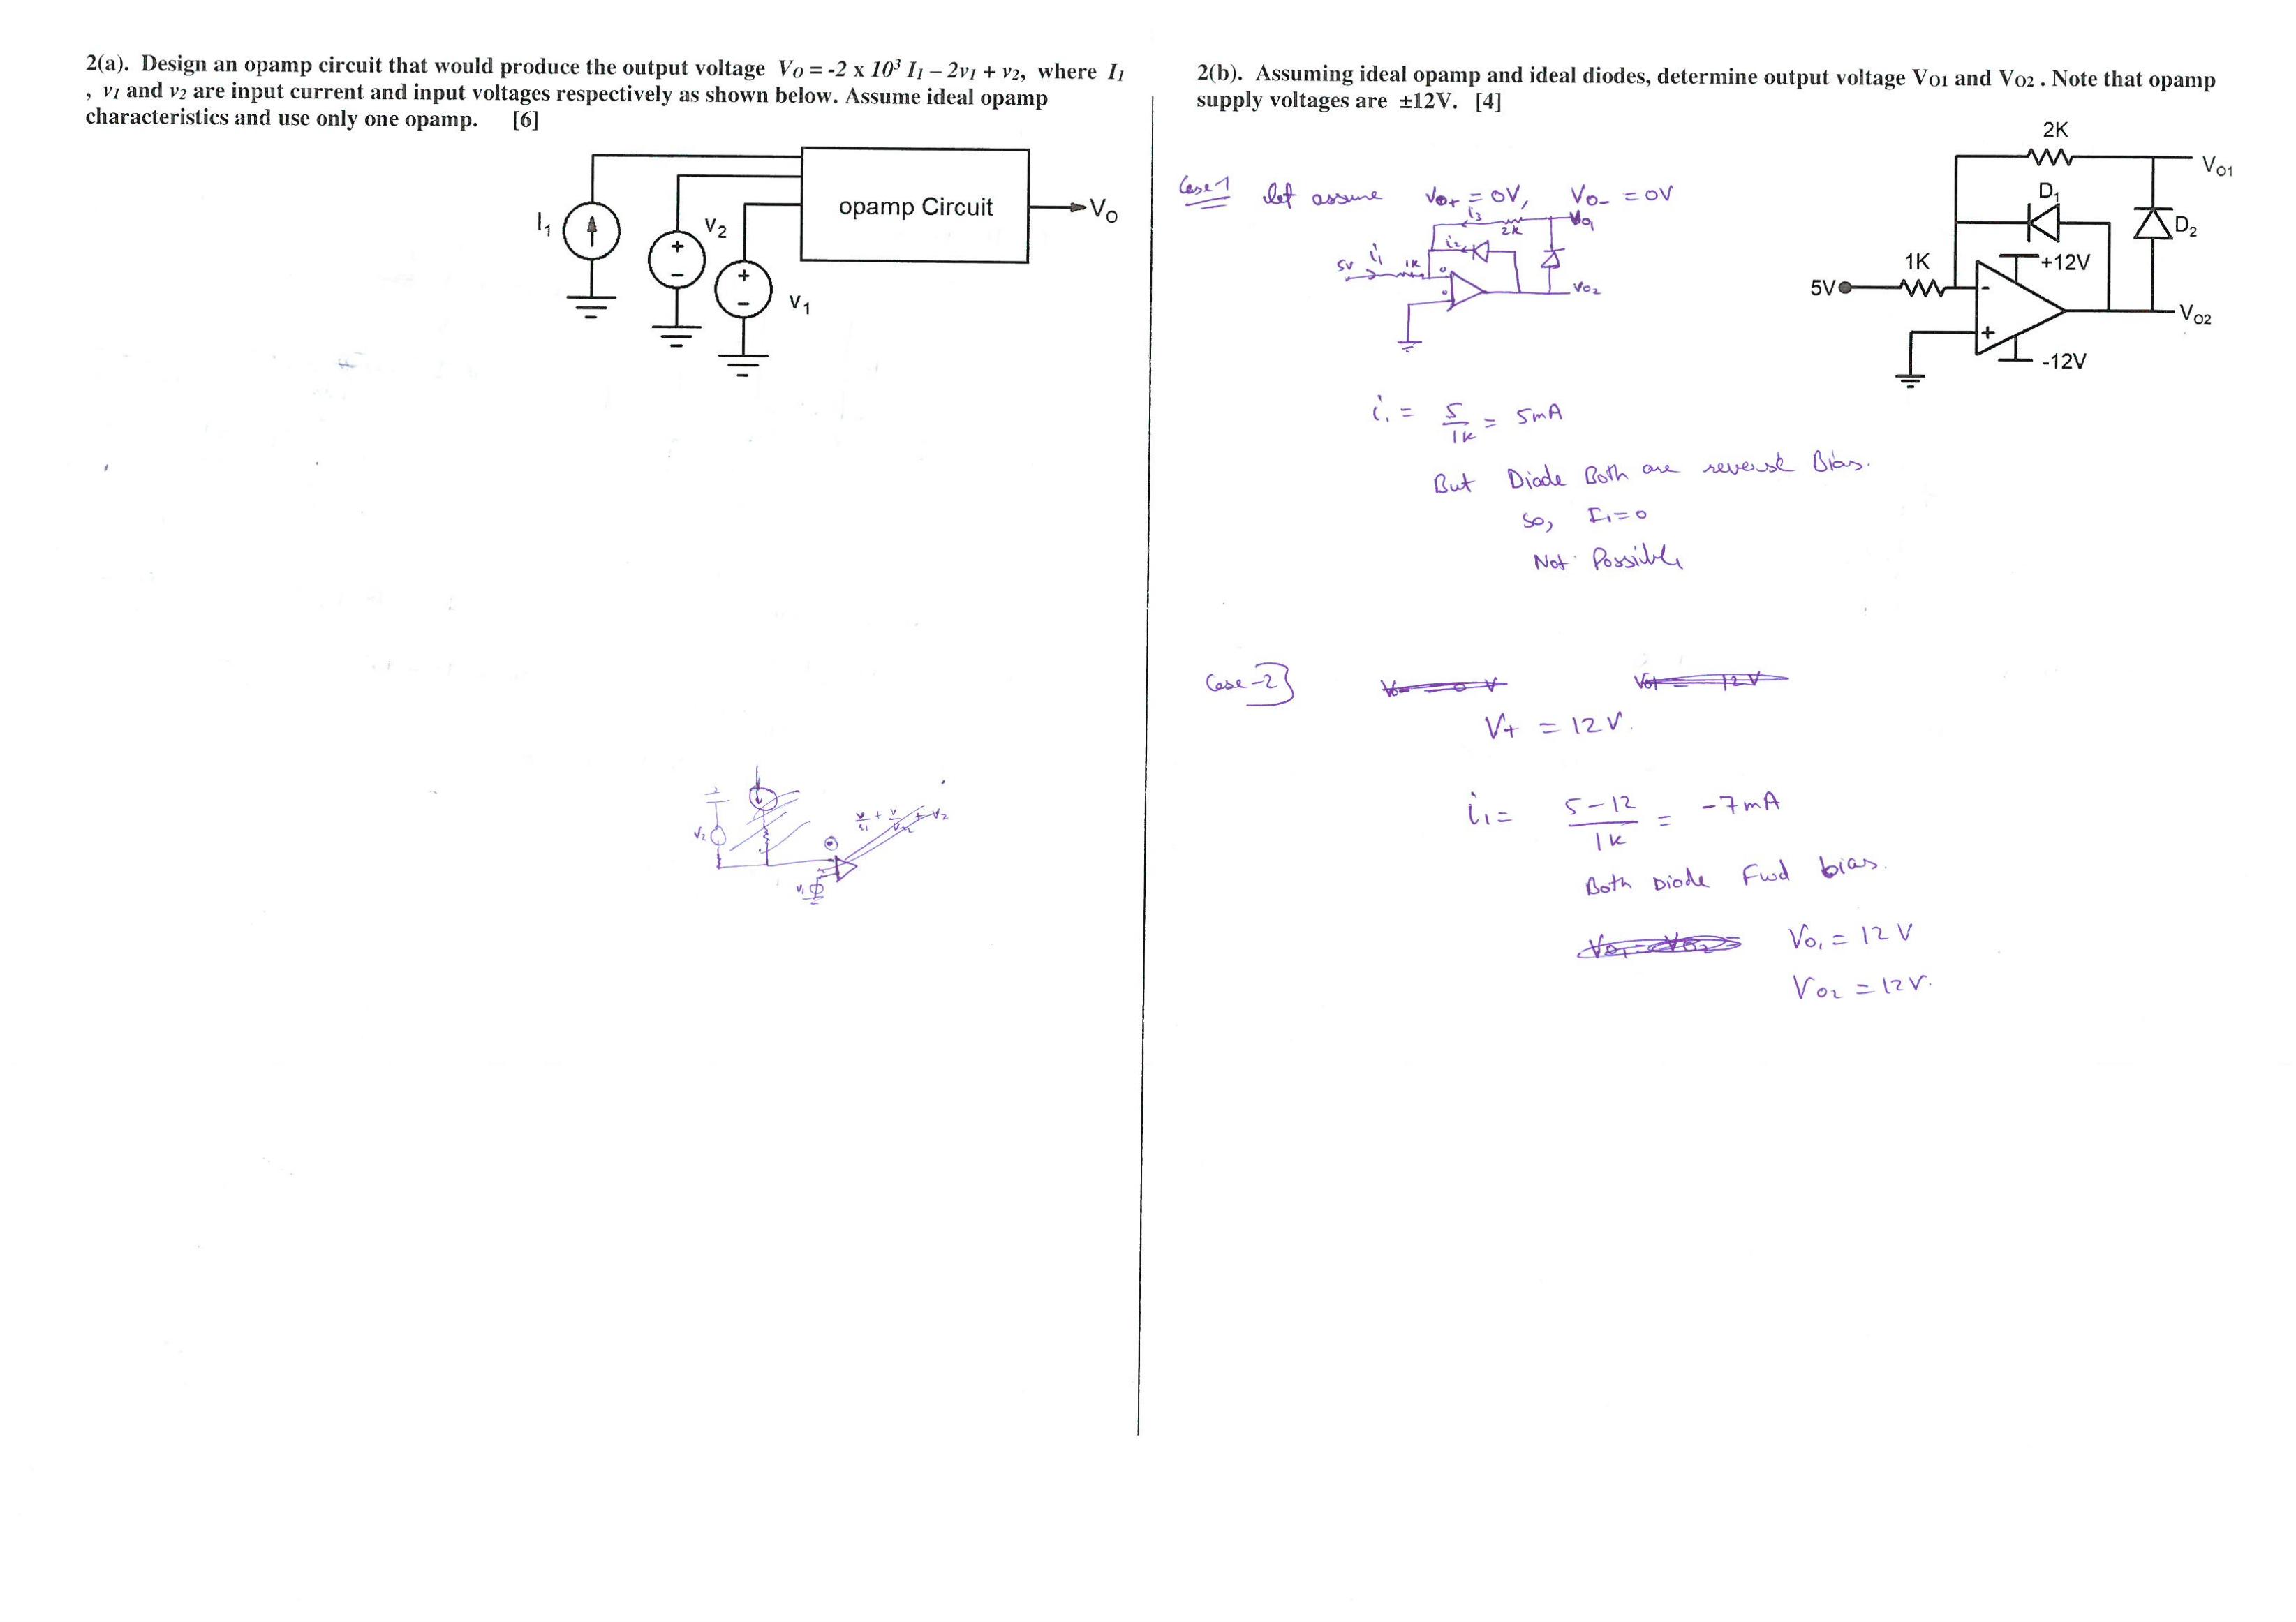 2(a). Design an opamp circuit that would produce the output voltage Vo = -2 x 10³ I₁ – 2v₁ + v₂, where I₁
, v₁ and v₂ are input current and input voltages respectively as shown below. Assume ideal opamp
characteristics and use only one opamp. [6]
I₁
V₂
+
-
+
-
V₁
opamp Circuit
Vo
V₂
V₁
2(b). Assuming ideal opamp and ideal diodes, determine output voltage Vo1 and Vo2 . Note that opamp
supply voltages are ±12V. [4]
2K
Vo1
D₁
D₂
+12V
1K
5V
-
+
Vo2
-12V
Case 1 let assume Vo+ = 0V, Vo- = 0V
i₃
2K
Vo1
i₂
5V i₁ 1K
Vo2
i₁ = 5/1K = 5mA
But Diode Both are reverse Bias.
So, I₁=0
Not Possible
Case-2}
V+ = 12V.
i₁= 5-12/1K = -7mA
Both Diode Fwd bias.
Vo₁ = 12V
Vo2 = 12V.